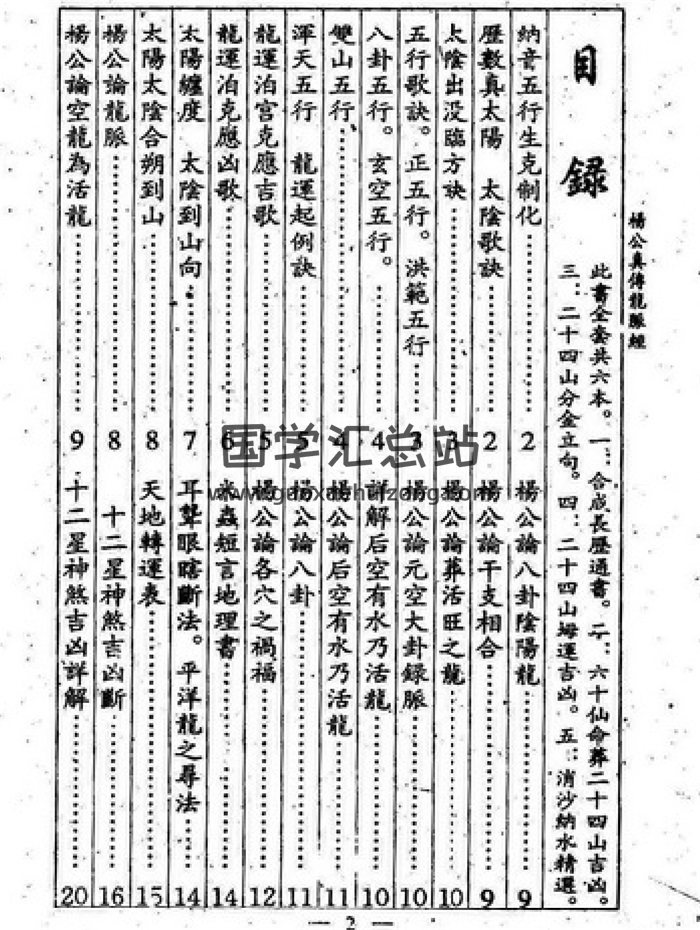 楊公真傳龍脈經
此書全套共六本。一：合成長歷通書。二：六十仙命葬二十四山吉凶。
三：二十四山分金立向。四：二十四山坶運吉凶。五：消沙納水精選。
目錄
納音五行生克制化……2
歷數真太陽 太陰歌訣……2
太陰出没臨方訣……3
五行歌訣。正五行。洪範五行……3
八卦五行。玄空五行。……4
雙山五行……4
渾天五行 龍運起例訣……5
龍運泊宫克應吉歌……5
龍運泊克應凶歌……6
太陽纏度 太陰到山向……7
太陽太陰合朔到山……8
楊公論龍脈……8
楊公論空龍為活龍……9
楊公論八卦陰陽龍……9
楊公論干支相合……9
楊公論葬活旺之龍……10
楊公論元空大卦錄脈……10
詳解后空有水乃活龍……10
楊公論后空有水乃活龍……11
楊公論八卦……11
楊公論各穴之禍福……12
米蟲短言地理書……14
耳聾眼瞎斷法。平洋龍之尋法……14
天地轉運表……15
十二星神煞吉凶斷……16
十二星神煞吉凶詳解……20
— 2 —
国学汇总站